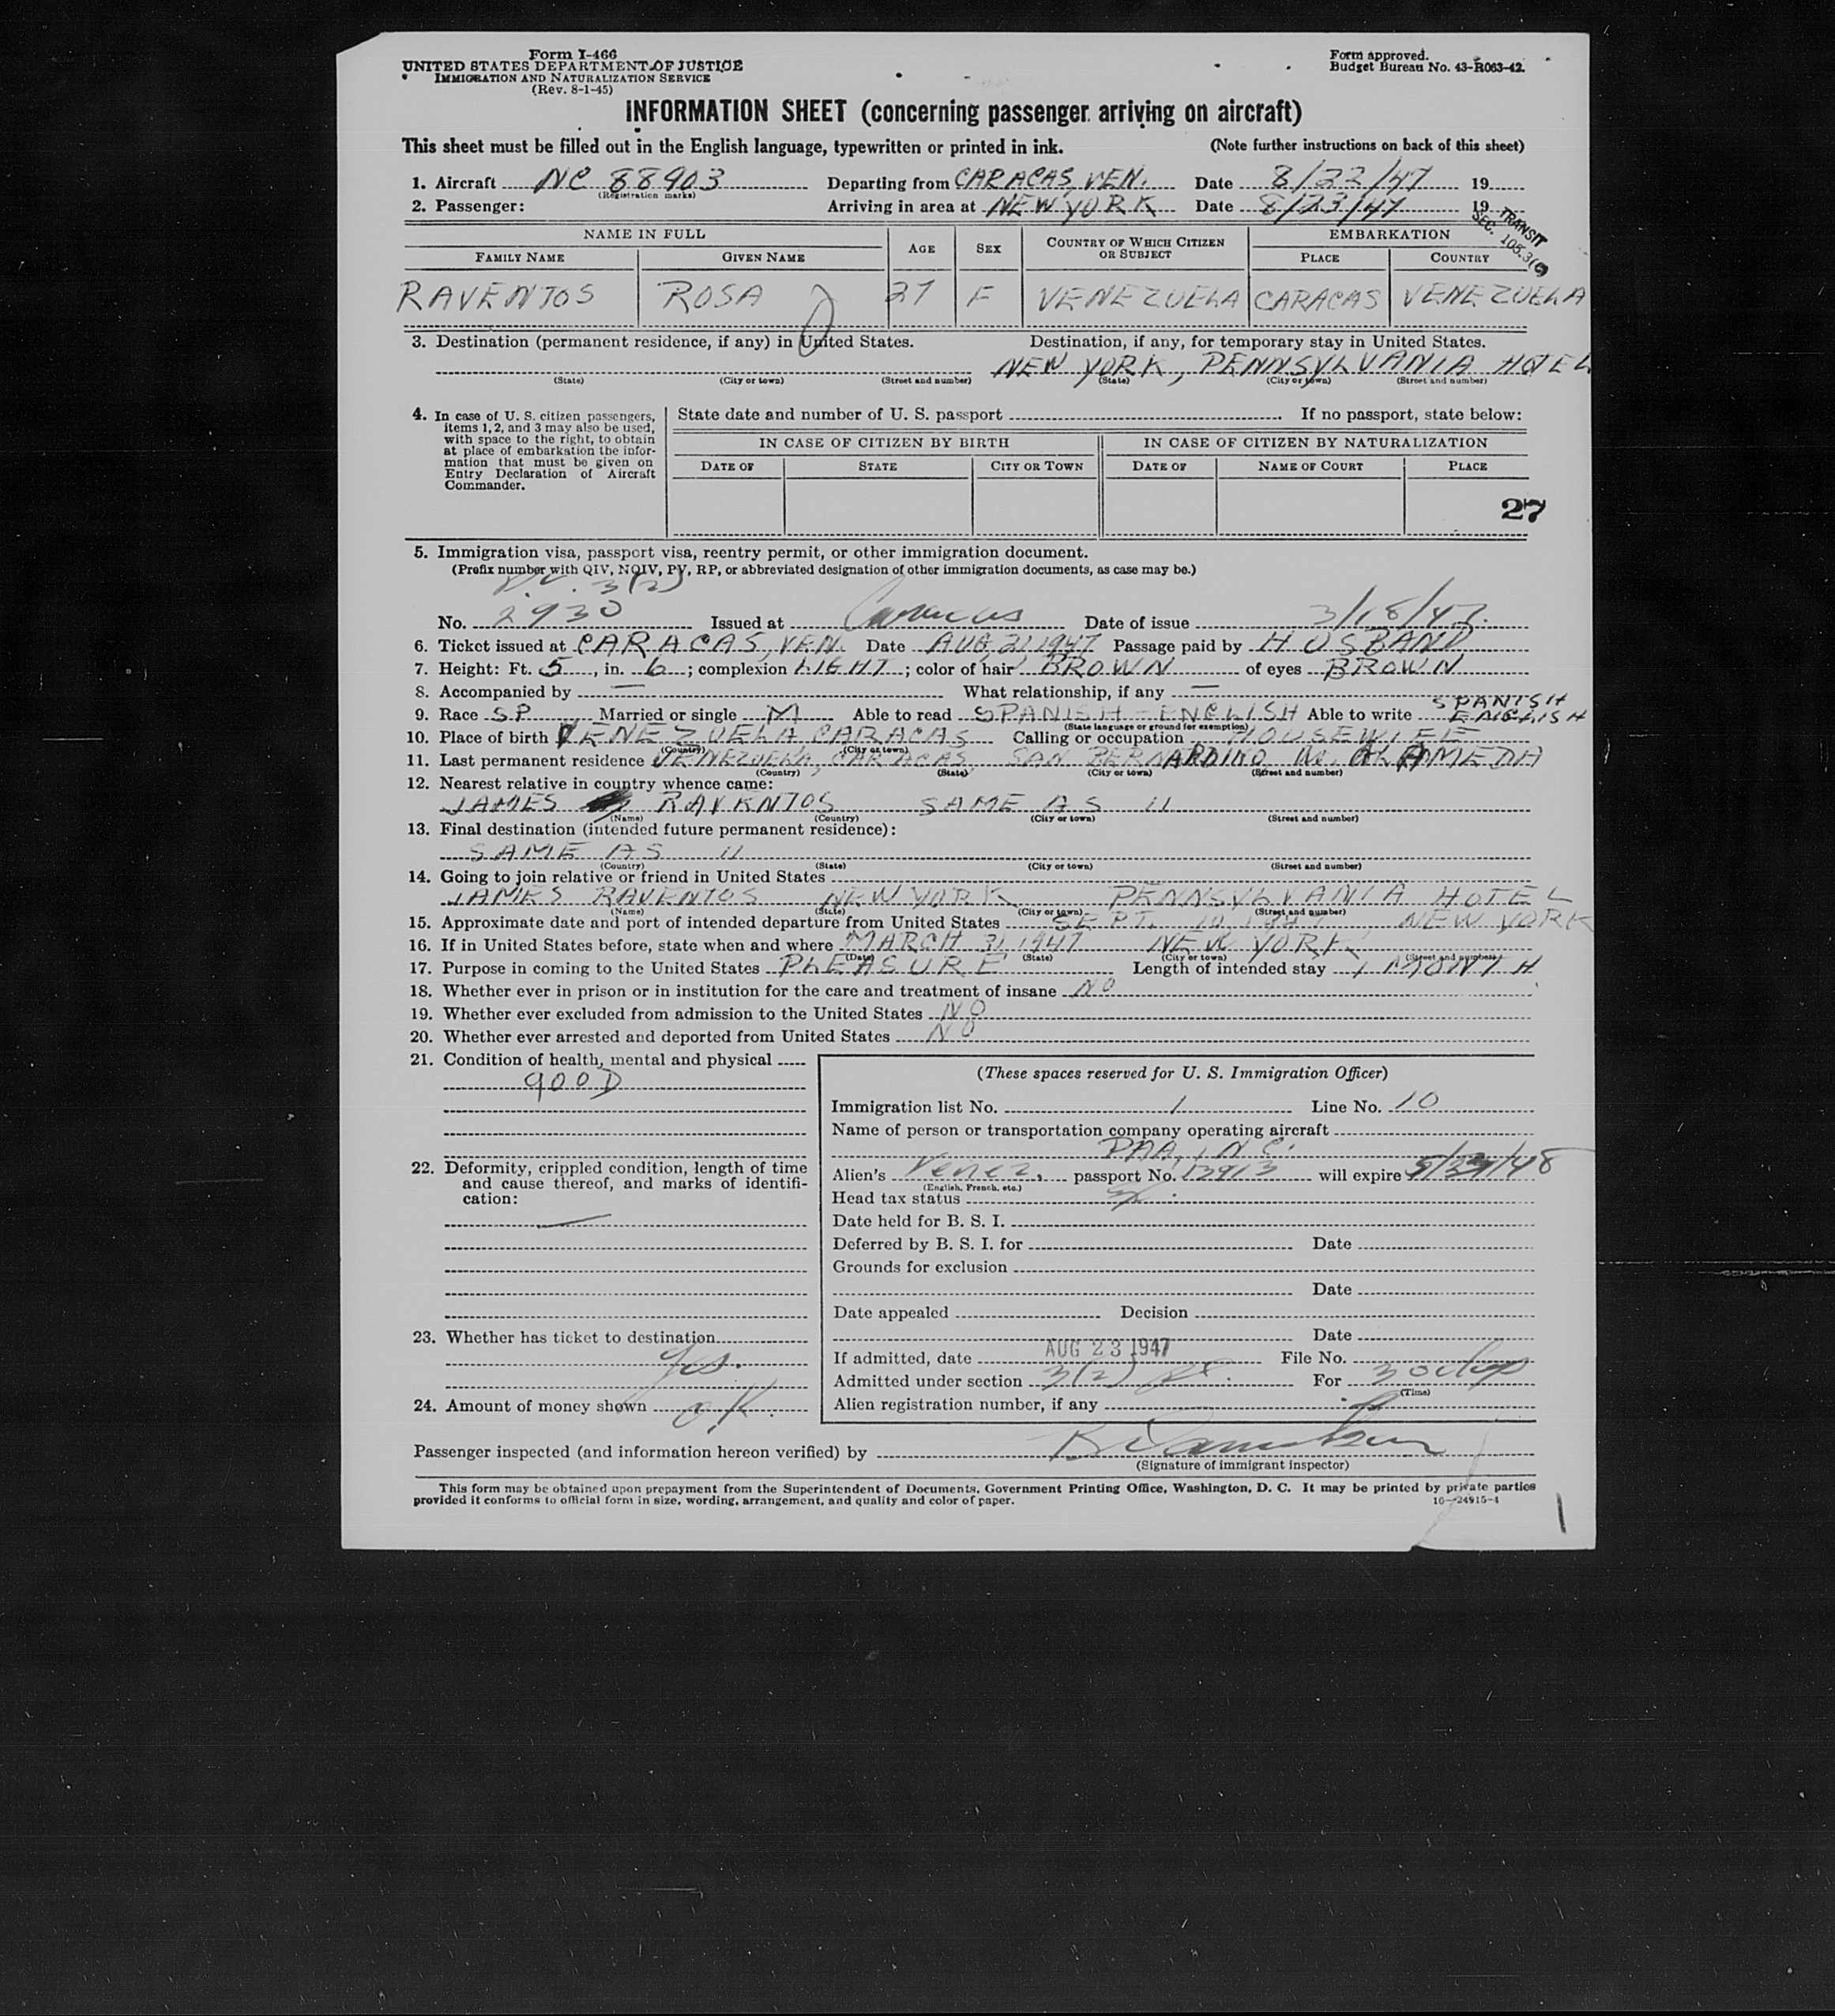 Form I-466
UNITED STATES DEPARTMENT OF JUSTICE
IMMIGRATION AND NATURALIZATION SERVICE
(Rev. 8-1-45)
Form approved.
Budget Bureau No. 43-R063-42.
INFORMATION SHEET (concerning passenger arriving on aircraft)
This sheet must be filled out in the English language, typewritten or printed in ink. (Note further instructions on back of this sheet)
1. Aircraft NC 88903 Departing from CARACAS, VEN. Date 8/22/47 19
(Registration marks)
2. Passenger: Arriving in area at NEW YORK Date 8/23/47 19
TRANSIT
SEC. 105.3(C)
NAME IN FULL AGE SEX COUNTRY OF WHICH CITIZEN OR SUBJECT EMBARKATION
FAMILY NAME GIVEN NAME PLACE COUNTRY
RAVENTOS ROSA 27 F VENEZUELA CARACAS VENEZUELA
3. Destination (permanent residence, if any) in United States. Destination, if any, for temporary stay in United States.
NEW YORK, PENNSYLVANIA HOTEL
(State) (City or town) (Street and number) (State) (City or town) (Street and number)
4. In case of U. S. citizen passengers, items 1, 2, and 3 may also be used, with space to the right, to obtain at place of embarkation the information that must be given on Entry Declaration of Aircraft Commander.
State date and number of U. S. passport If no passport, state below:
IN CASE OF CITIZEN BY BIRTH IN CASE OF CITIZEN BY NATURALIZATION
DATE OF STATE CITY OR TOWN DATE OF NAME OF COURT PLACE
27
5. Immigration visa, passport visa, reentry permit, or other immigration document.
(Prefix number with QIV, NQIV, PV, RP, or abbreviated designation of other immigration documents, as case may be.)
P.V. 3(2)
No. 2930 Issued at Caracas Date of issue 3/18/47.
6. Ticket issued at CARACAS, VEN. Date AUG, 21 1947 Passage paid by HUSBAND
7. Height: Ft. 5, in. 6; complexion LIGHT; color of hair BROWN of eyes BROWN
8. Accompanied by — What relationship, if any —
SPANISH
9. Race SP Married or single M Able to read SPANISH - ENGLISH Able to write ENGLISH
(State language or ground for exemption)
10. Place of birth VENEZUELA CARACAS Calling or occupation HOUSEWIFE
(Country) (City or town)
11. Last permanent residence VENEZUELA, CARACAS, SAN BERNARDINO AV. ALAMEDA
(Country) (State) (City or town) (Street and number)
12. Nearest relative in country whence came:
JAMES RAVENTOS SAME AS 11
(Name) (Country) (City or town) (Street and number)
13. Final destination (intended future permanent residence):
SAME AS 11
(Country) (State) (City or town) (Street and number)
14. Going to join relative or friend in United States
JAMES RAVENTOS NEW YORK PENNSYLVANIA HOTEL
(Name) (State) (City or town) (Street and number)
15. Approximate date and port of intended departure from United States SEPT. 10 1947, NEW YORK
16. If in United States before, state when and where MARCH 31 1947 NEW YORK
(Date) (State) (City or town) (Street and number)
17. Purpose in coming to the United States PLEASURE Length of intended stay 1 MONTH
18. Whether ever in prison or in institution for the care and treatment of insane NO
19. Whether ever excluded from admission to the United States NO
20. Whether ever arrested and deported from United States NO
21. Condition of health, mental and physical
GOOD
22. Deformity, crippled condition, length of time and cause thereof, and marks of identification:
—
23. Whether has ticket to destination
Yes.
24. Amount of money shown O.K.
(These spaces reserved for U. S. Immigration Officer)
Immigration list No. 1 Line No. 10
Name of person or transportation company operating aircraft
PAA, INC.
Alien's Venez. passport No. 13913 will expire
(English, French, etc.)
Head tax status
Date held for B. S. I.
Deferred by B. S. I. for Date
Grounds for exclusion
Date
Date appealed Decision
Date
If admitted, date AUG 23 1947 File No.
Admitted under section 3(2) For 30 dys
(Time)
Alien registration number, if any
Passenger inspected (and information hereon verified) by
(Signature of immigrant inspector)
This form may be obtained upon prepayment from the Superintendent of Documents, Government Printing Office, Washington, D. C. It may be printed by private parties
provided it conforms to official form in size, wording, arrangement, and quality and color of paper. 16—24915-1